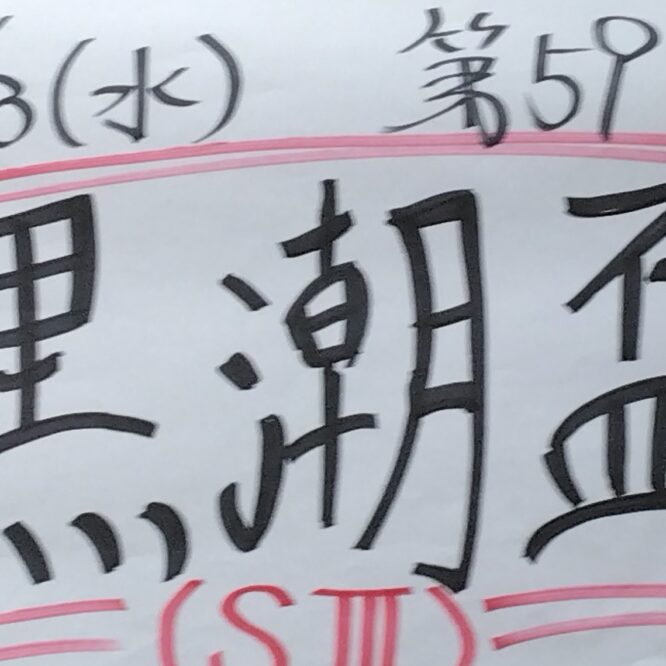 3(水) 第59
黒潮盃
(SⅢ)